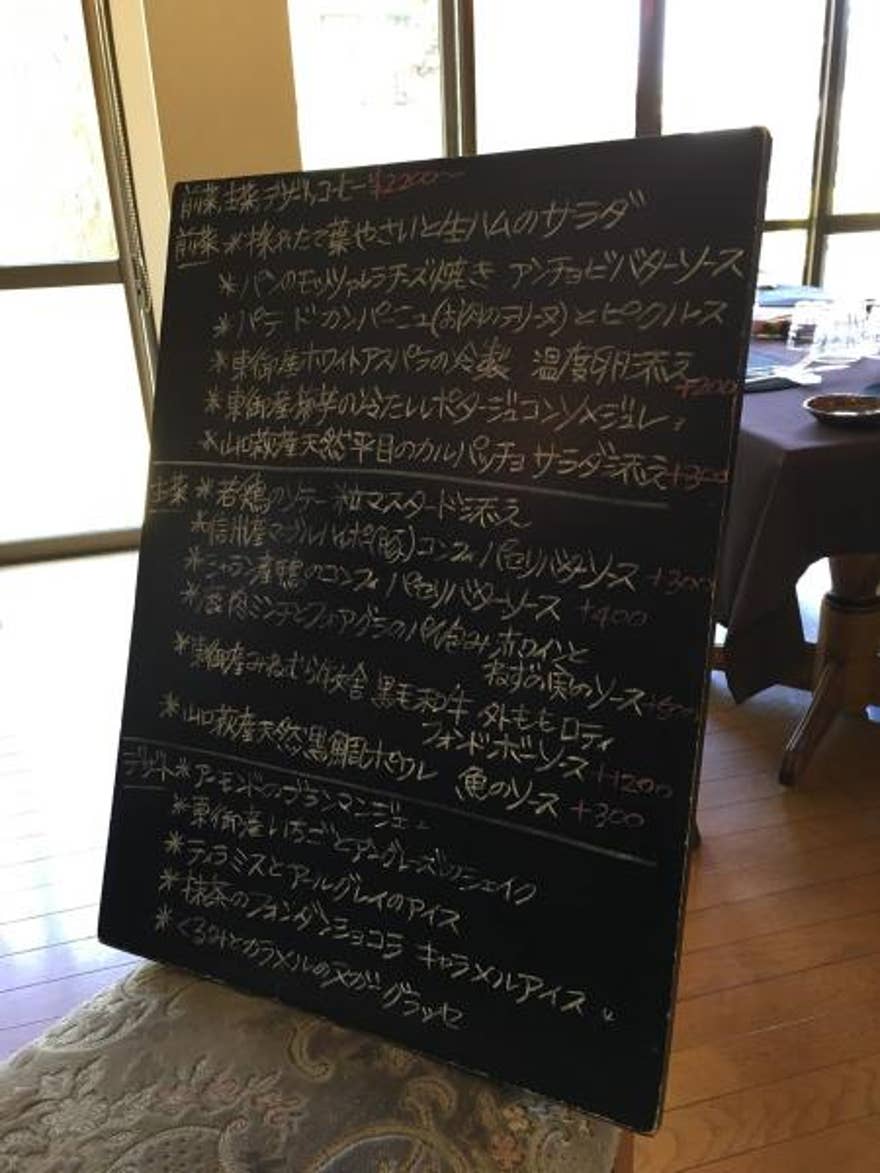 前菜、主菜、デザート、コーヒー ¥2200〜
前菜 * 採れたて葉やさいと生ハムのサラダ
* パンのモッツァレラチーズ焼き アンチョビバターソース
* パテ ド カンパーニュ(お肉のテリーヌ)とピクルス
* 東御産ホワイトアスパラの冷製 温度卵添え
+200
* 東御産の冷たいポタージュコンソメジュレ
* 山口萩産天然平目のカルパッチョ サラダ添え +300
主菜 * 若鶏のソテー 粒マスタード添え
* 信州産(豚)コンフィ パセリバターソース +300
* シャラン産鴨のコンフィ パセリバターソース +400
* ミンチとフォアグラのパイ包み 赤ワインと
ねずの実のソース
* 東御産みねむら牧舎 黒毛和牛 外ももロティ
フォンドボーソース +1200
* 山口萩産天然黒鯛ポワレ 魚のソース +300
デザート * アーモンドのブランマンジェ
* 東御産いちごとアングレーズのシェイク
* ティラミスとアールグレイのアイス
* 抹茶のフォンダンショコラ キャラメルアイス
* くるみとカラメルのヌガーグラッセ